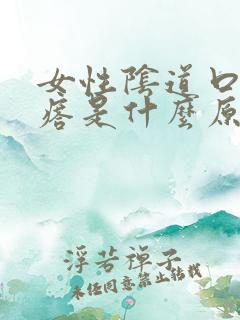 女性陰道口
痞是什麼原
浮若禪子
未经同意禁止转载